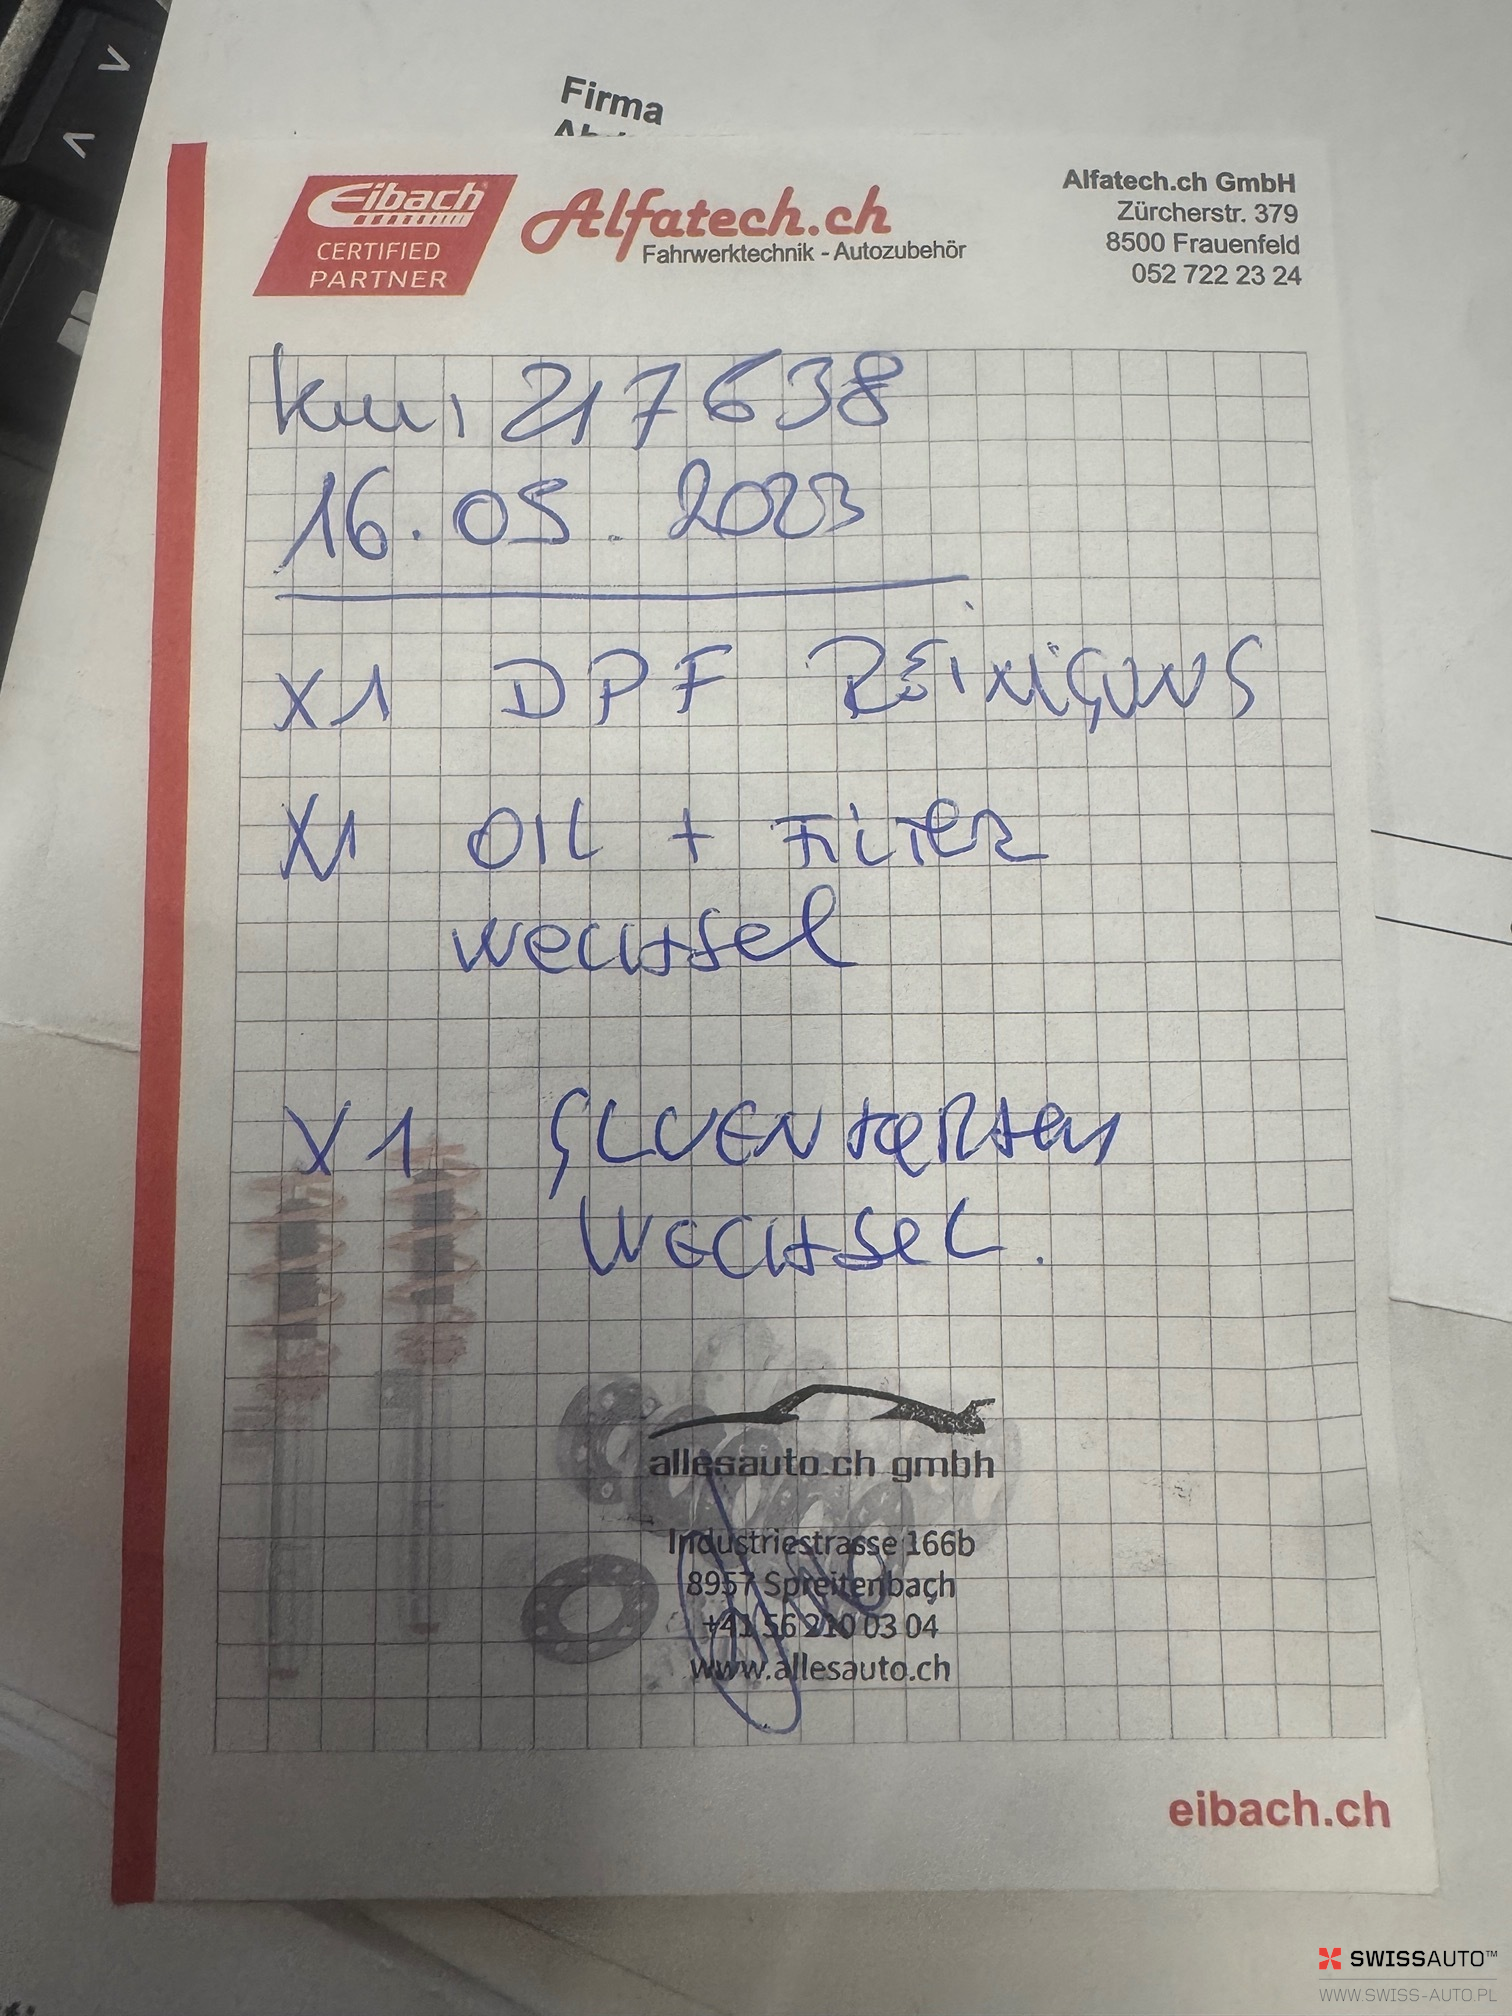 Firma
Eibach
CERTIFIED
PARTNER
Alfatech.ch
Fahrwerktechnik - Autozubehör
Alfatech.ch GmbH
Zürcherstr. 379
8500 Frauenfeld
052 722 23 24
km: 217638
16.05.2023
X1 DPF REiNiGUNG
X1 OIL + FiLTER
wecHsel
X1 GLUENKERtEN
WecHseL.
allesauto.ch gmbh
Industriestrasse 166b
8957 Spreitenbach
+41 56 210 03 04
www.allesauto.ch
eibach.ch
SWISSAUTO™
WWW.SWISS-AUTO.PL